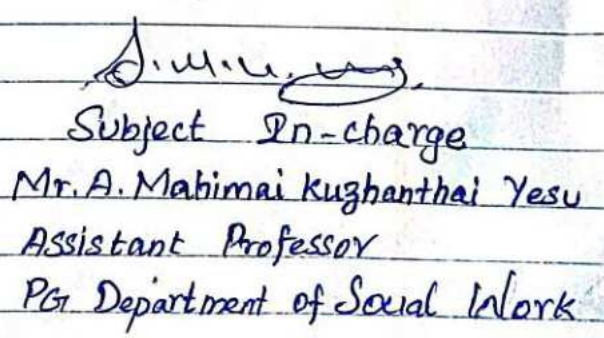 Subject In-charge
Mr. A. Mahimai Kuzhanthai Yesu
Assistant Professor
PG Department of Social Work